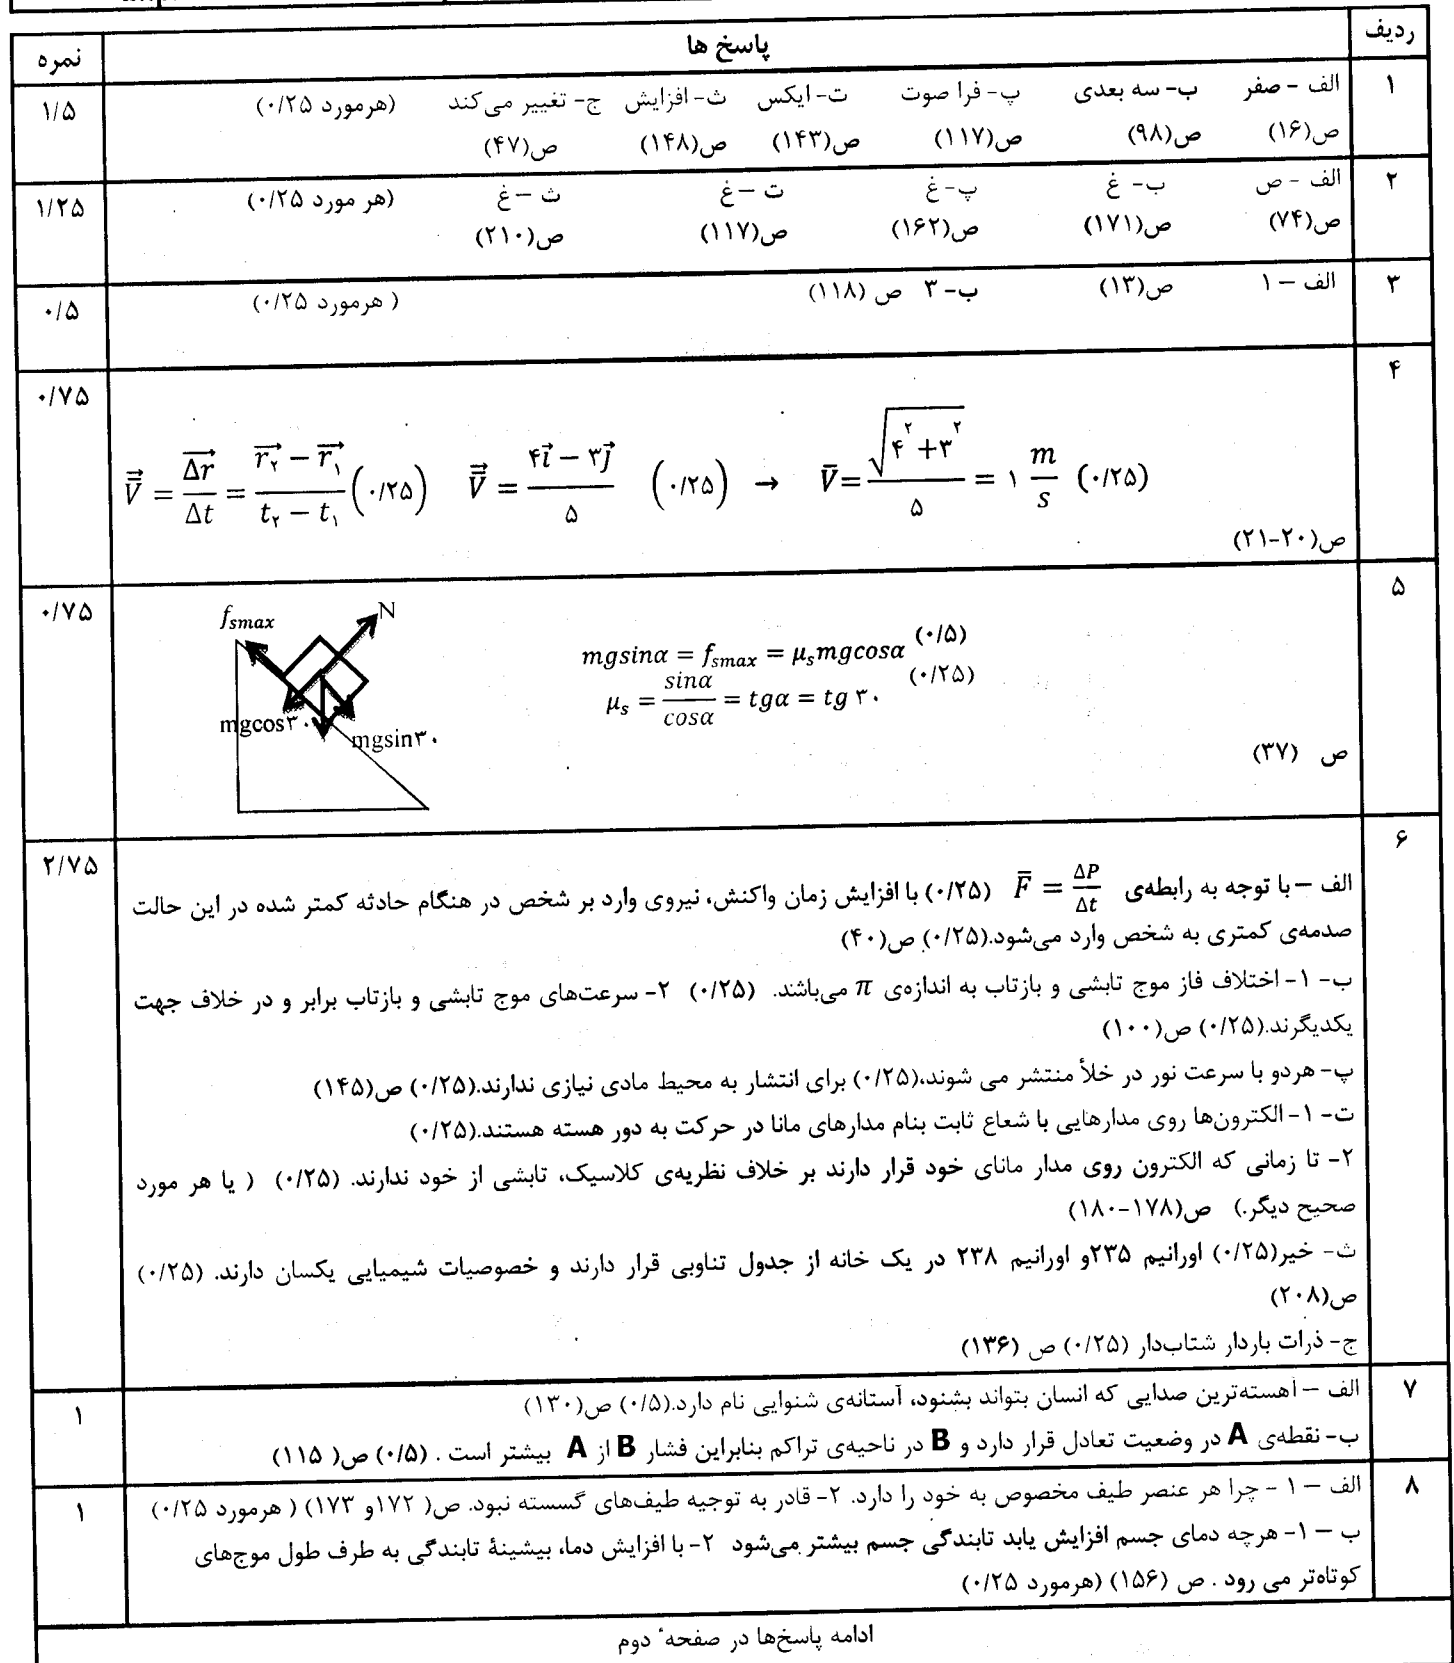 ردیف	پاسخ ها	نمره
۱	الف - صفر	ب- سه بعدی	پ- فرا صوت	ت- ایکس	ث- افزایش	ج- تغییر می‌کند	(هرمورد ۰/۲۵)	۱/۵
ص(۱۶)	ص(۹۸)	ص(۱۱۷)	ص(۱۴۳)	ص(۱۴۸)	ص(۴۷)
۲	الف - ص	ب- غ	پ- غ	ت – غ	ث – غ	(هر مورد ۰/۲۵)	۱/۲۵
ص(۷۴)	ص(۱۷۱)	ص(۱۶۲)	ص(۱۱۷)	ص(۲۱۰)
۳	الف – ۱	ص(۱۳)	ب- ۳ ص (۱۱۸)	( هرمورد ۰/۲۵)	۰/۵
۴	۰/۷۵
$\vec{\bar{V}} = \frac{\overrightarrow{\Delta r}}{\Delta t} = \frac{\overrightarrow{r_۲} - \overrightarrow{r_۱}}{t_۲ - t_۱}$ (۰/۲۵) $\vec{\bar{V}} = \frac{۴\vec{i} - ۳\vec{j}}{۵}$ (۰/۲۵) → $\bar{V} = \frac{\sqrt{۴^۲ + ۳^۲}}{۵} = ۱ \frac{m}{s}$ (۰/۲۵)
ص(۲۰-۲۱)
۵	۰/۷۵
f_smax	N
mgsinα = f_smax = μ_s mgcosα (۰/۵)
μ_s = sinα/cosα = tgα = tg ۳۰ (۰/۲۵)
mgcos۳۰	mgsin۳۰
ص (۳۷)
۶	۲/۷۵
الف – با توجه به رابطه‌ی $\bar{F} = \frac{\Delta P}{\Delta t}$ (۰/۲۵) با افزایش زمان واکنش، نیروی وارد بر شخص در هنگام حادثه کمتر شده در این حالت
صدمه‌ی کمتری به شخص وارد می‌شود.(۰/۲۵) ص(۴۰)
ب- ۱- اختلاف فاز موج تابشی و بازتاب به اندازه‌ی π می‌باشند. (۰/۲۵) ۲- سرعت‌های موج تابشی و بازتاب برابر و در خلاف جهت
یکدیگرند.(۰/۲۵) ص(۱۰۰)
پ- هردو با سرعت نور در خلأ منتشر می شوند،(۰/۲۵) برای انتشار به محیط مادی نیازی ندارند.(۰/۲۵) ص(۱۴۵)
ت- ۱- الکترون‌ها روی مدارهایی با شعاع ثابت بنام مدارهای مانا در حرکت به دور هسته هستند.(۰/۲۵)
۲- تا زمانی که الکترون روی مدار مانای خود قرار دارند بر خلاف نظریه‌ی کلاسیک، تابشی از خود ندارند. (۰/۲۵) ( یا هر مورد
صحیح دیگر.) ص(۱۷۸-۱۸۰)
ث- خیر(۰/۲۵) اورانیم ۲۳۵و اورانیم ۲۳۸ در یک خانه از جدول تناوبی قرار دارند و خصوصیات شیمیایی یکسان دارند. (۰/۲۵)
ص(۲۰۸)
ج- ذرات باردار شتاب‌دار (۰/۲۵) ص (۱۳۶)
۷	الف – آهسته‌ترین صدایی که انسان بتواند بشنود، آستانه‌ی شنوایی نام دارد.(۰/۵) ص(۱۳۰)	۱
ب- نقطه‌ی A در وضعیت تعادل قرار دارد و B در ناحیه‌ی تراکم بنابراین فشار B از A بیشتر است . (۰/۵) ص( ۱۱۵)
۸	الف – ۱ - چرا هر عنصر طیف مخصوص به خود را دارد. ۲- قادر به توجیه طیف‌های گسسته نبود. ص( ۱۷۲و ۱۷۳) ( هرمورد ۰/۲۵)	۱
ب – ۱- هرچه دمای جسم افزایش یابد تابندگی جسم بیشتر می‌شود ۲- با افزایش دما، بیشینهٔ تابندگی به طرف طول موج‌های
کوتاه‌تر می رود . ص (۱۵۶) (هرمورد ۰/۲۵)
ادامه پاسخ‌ها در صفحهٔ دوم